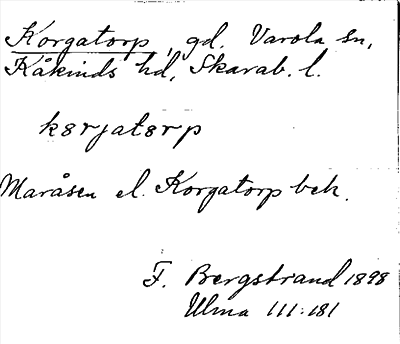 Korgatorp, gd. Varola sn,
Kåkinds hd, Skarab. l.
kɜrjatɜrp
Maråsen el. Korgatorp beh.
F. Bergstrand 1898
Ulma 111:181